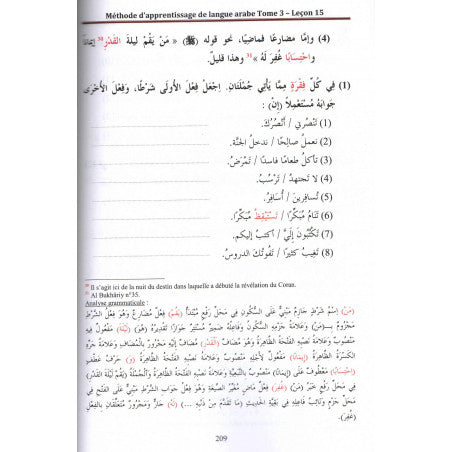 Méthode d'apprentissage de langue arabe Tome 3 – Leçon 15
(4) وإمَّا مضارعًا فماضيًا، نحو قوله (ﷺ) « مَنْ يَقُمْ ليلةَ القَدْرِ³⁰ إيمانًا
واحْتِسَابًا غُفِرَ لَهُ »³¹ وهذا قليلٌ.
(1) فِي كُلِّ فِقْرَةٍ مِمَّا يَأْتِي جُمْلَتَانِ. اِجْعَلْ فِعْلَ الأُولَى شَرْطًا، وَفِعْلَ الأُخْرَى
جَوَابَهُ مُسْتَعْمِلًا (إنْ) :
(1) تَنْصُرني / أَنْصُرُكَ.
(2) نعملُ صالِحًا / ندخلُ الجَنَّةَ.
(3) تأكلُ طعامًا فاسدًا / تَمْرَضُ.
(4) لا تَجتهدُ / تَرْسُبُ.
(5) تُسافِرينَ / أُسَافِرُ.
(6) تَنَامُ مُبَكِّرًا / تَسْتَيْقِظُ مُبَكِّرًا.
(7) تَكْتُبُونَ إلَيَّ / اكتبُ إليكم.
(8) تَغيبُ كثيرًا / تَفُوتُكَ الدروسُ.
³⁰ Il s'agit ici de la nuit du destin dans laquelle a débuté la révélation du Coran.
³¹ Al Bukhâriy n°35.
Analyse grammaticale :
(مَنْ) اِسْمُ شَرْطٍ جَازِمٌ مَبْنِيٌّ عَلَى السُّكُونِ فِي مَحَلِّ رَفْعٍ مُبْتَدَأٌ (يَقُمْ) فِعْلٌ مُضَارِعٌ وَهُوَ فِعْلُ الشَّرْطِ
مَجْزُومٌ بِـ(مَنْ) وَعَلَامَةُ جَزْمِهِ السُّكُونُ وَفَاعِلُهُ ضَمِيرٌ مُسْتَتِرٌ جَوَازًا تَقْدِيرُهُ (هُوَ) (لَيْلَةَ) مَفْعُولٌ فِيهِ
مَنْصُوبٌ وَعَلَامَةُ نَصْبِهِ الفَتْحَةُ الظَّاهِرَةُ وَهُوَ مُضَافٌ (الْقَدْرِ) مُضَافٌ إِلَيْهِ مَجْرُورٌ بِالْمُضَافِ وَعَلَامَةُ جَرِّهِ
الكَسْرَةُ الظَّاهِرَةُ (إِيمَانًا) مَفْعُولٌ لِأَجْلِهِ مَنْصُوبٌ وَعَلَامَةُ نَصْبِهِ الفَتْحَةُ الظَّاهِرَةُ (وَ) حَرْفُ عَطْفٍ
(احْتِسَابًا) مَعْطُوفٌ عَلَى (إِيمَانًا) مَنْصُوبٌ بِالتَّبَعِيَّةِ وَعَلَامَةُ نَصْبِهِ الفَتْحَةُ الظَّاهِرَةُ وَالْجُمْلَةُ (يَقُمْ لَيْلَةَ الْقَدْرِ)
فِي مَحَلِّ رَفْعٍ خَبَرُ (مَنْ) (غُفِرَ) فِعْلٌ مَاضٍ مُغَيَّرُ الصِّيغَةِ وَهُوَ فِعْلُ جَوَابِ الشَّرْطِ مَبْنِيٌّ عَلَى الْفَتْحِ فِي
مَحَلِّ جَزْمٍ وَنَائِبُ فَاعِلِهِ فِي بَقِيَّةِ الْحَدِيثِ (مَا تَقَدَّمَ مِنْ ذَنْبِهِ ...) (لَهُ) جَارٌّ وَمَجْرُورٌ مُتَعَلِّقَانِ بِالفِعْلِ
(غُفِرَ).
209